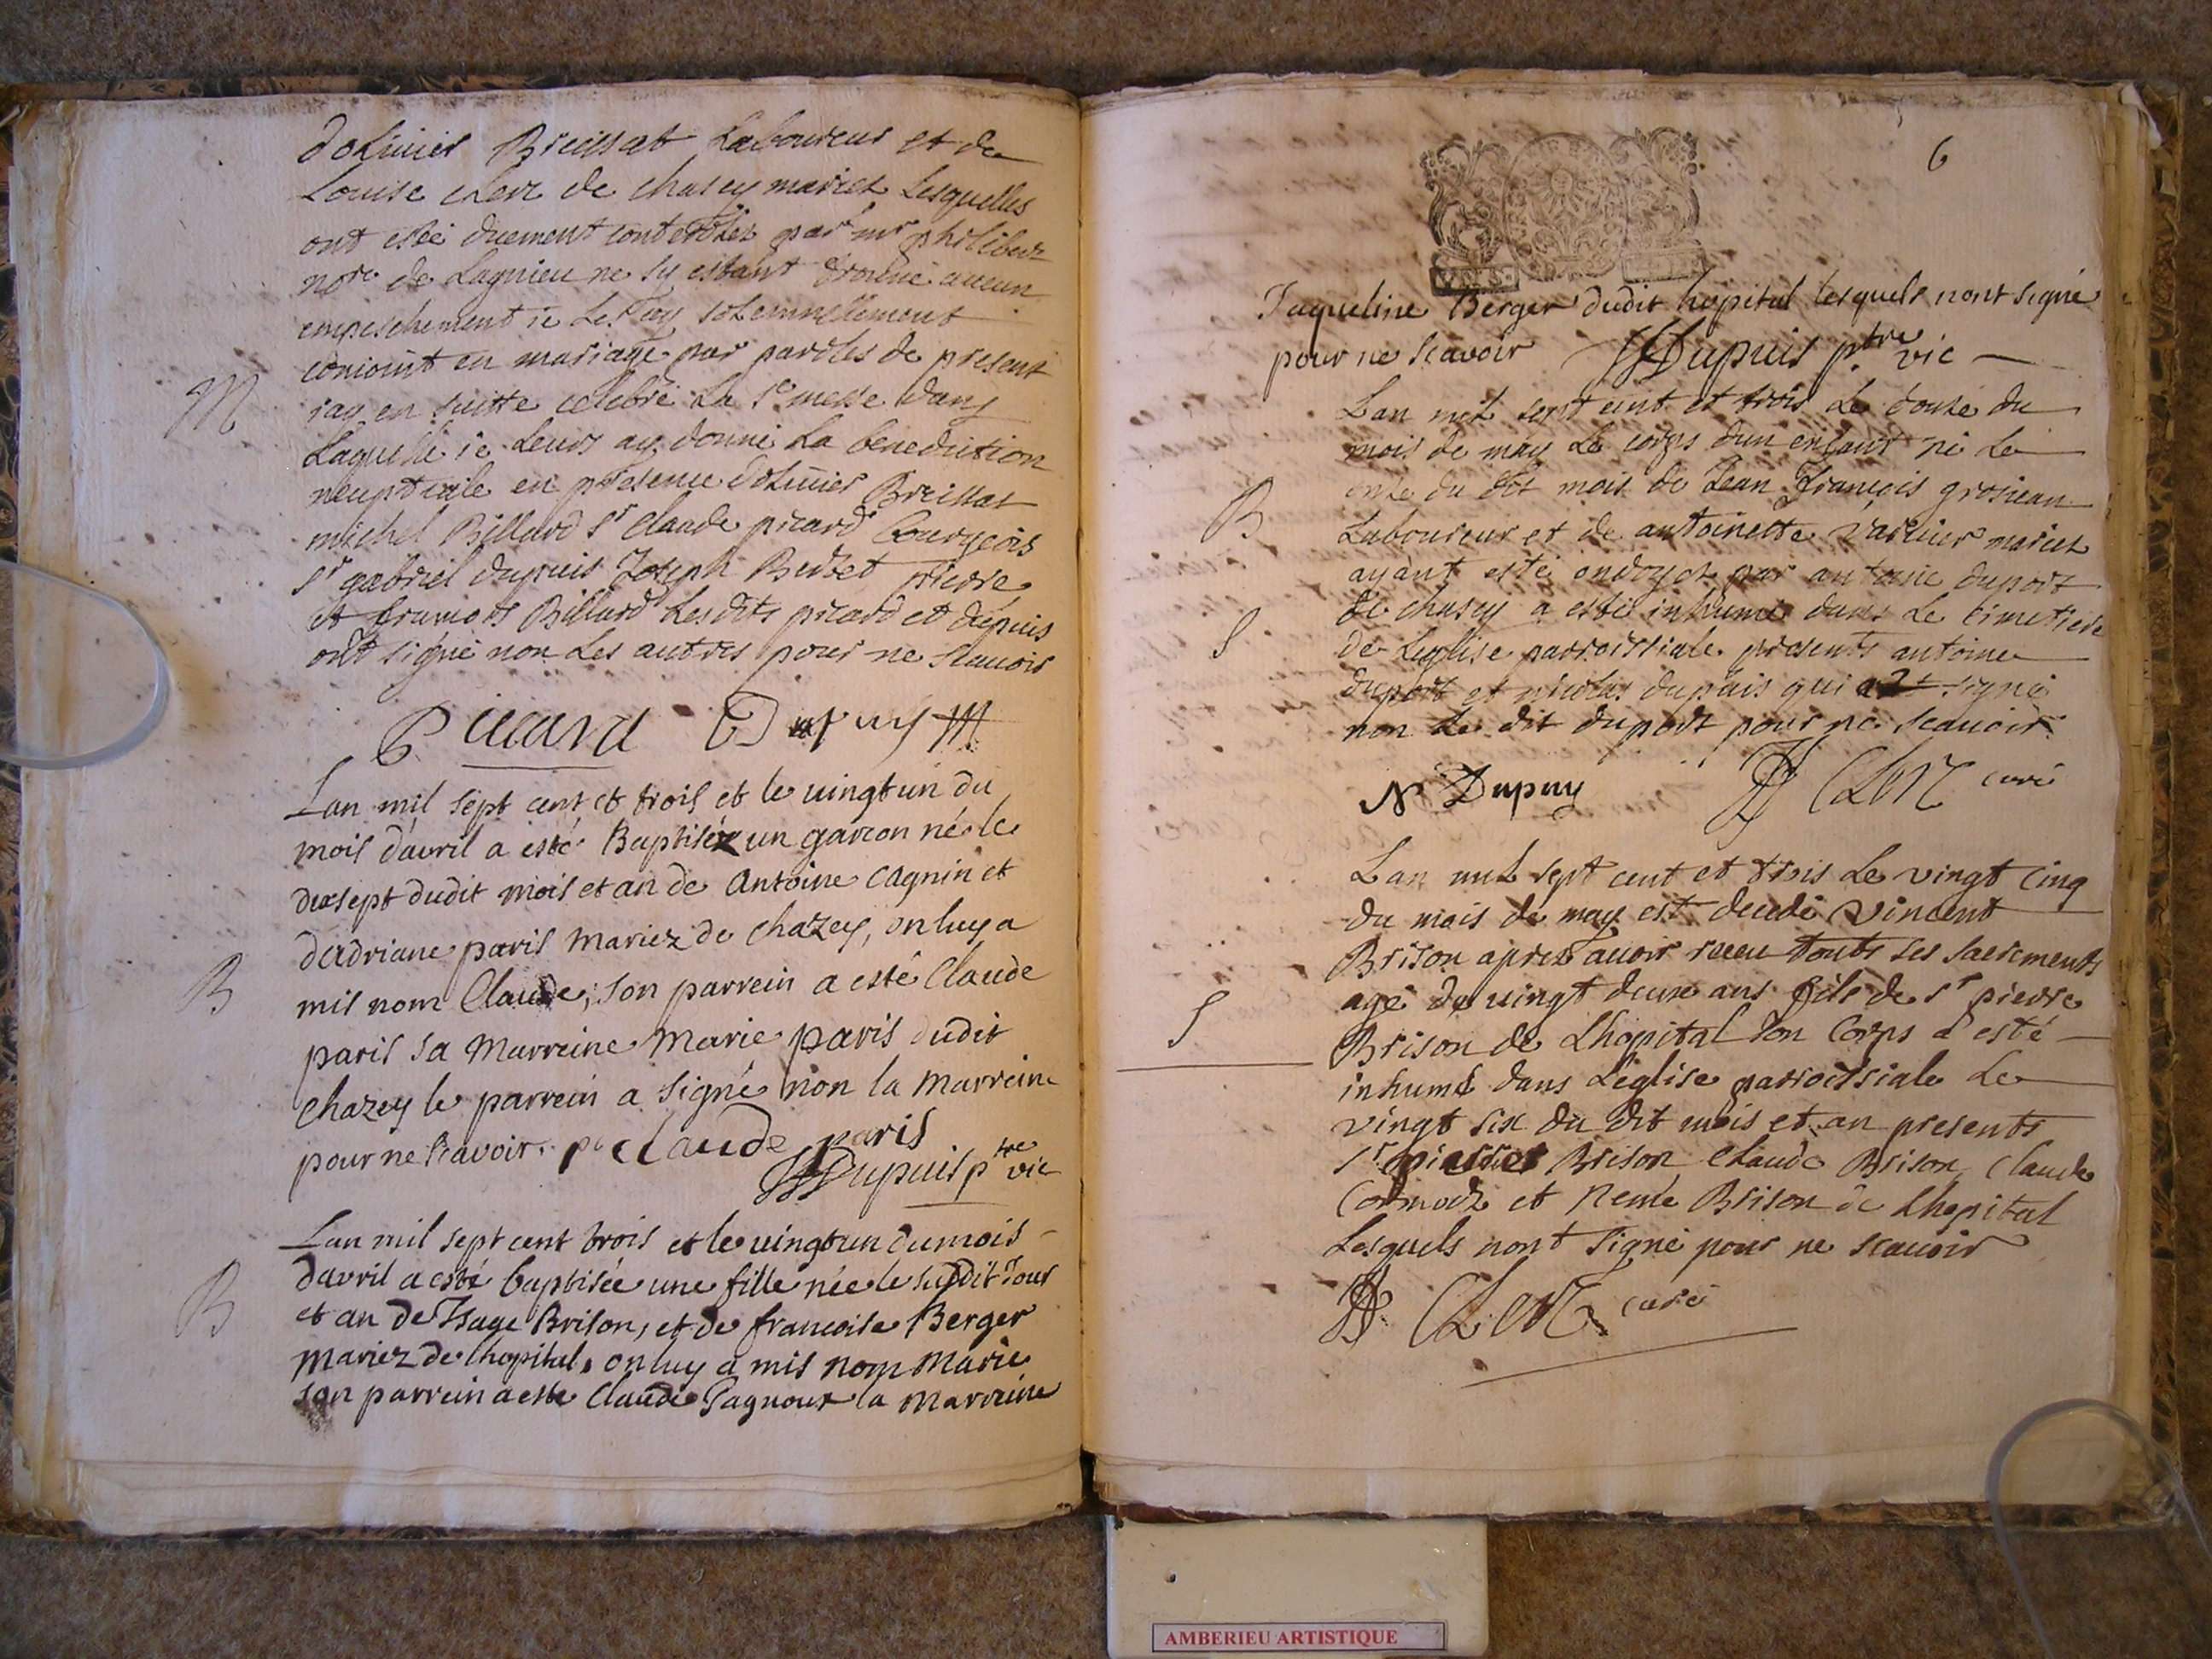 dolivier Breissat Laboureur et de
Louise clerc de chasey mariez Lesquelles
ont esté duement controlléz par mr philibert
nore de Lagnieu ne sy estant trouué aucun
empeschement ie Les ay solemnellement
conioint en mariage par paroles de present
M
iay en suitte celebré La Se messe dans
Laquelle ie Leurs ay donné La benediction
neuptiale en presence dolivier Breissat
michel Billard Sr Claude picard Bourgeois
Sr gabriel dupuis Joseph Berset pierre
et francois Billard Lesdits picard et dupuis
ont signé non Les autres pour ne scauoir
Picard Dupuy
Lan mil sept cent et trois et le uingt un du
mois d'avril a esté Baptiséz un garcon né le
dixsept dudit mois et an de Antoine Cagnin et
dadriane paris mariez de chazey, on luy a
B
mis nom Claude; son parrein a esté Claude
paris sa Marreine Marie paris dudit
chazey le parrein a signé non la Marreine
pour ne scavoir. Claude paris
Dupuis ptre vic
Lan mil sept cent trois et le uingt un du mois
davril a esté baptisée une fille née le susdit Jour
B
et an de Isaye Brison, et de francoise Berger
Mariez de lhopital, on luy a mis nom Marie
son parrein a este Claude Pagnoux la Marreine
6
Jaqueline Berger dudit hopital lesquels nont signé
pour ne scavoir Dupuis ptre vic
Lan mil sept cent et trois Le douze du
mois de may Le corps dun enfant né Le
onze du dit mois de Jean François grosiean
B
Laboureur et de antoinette varnier mariez
ayant esté ondoyez par antoine duport
de chasey a esté inhumé dans Le cimetiere
S
de Leglise parroissiale presents antoine
duport et nicolas dupuis qui a signé
non Le dit duport pour ne scauoir
N Dupuy Clerc curé
Lan mil sept cent et trois Le vingt cinq
du mois de may est decedé Vincent
Brison aprez auoir receu touts ses sacrements
agé de uingt deux ans fils de Sr pierre
S
Brison de Lhopital son Corps a esté
inhumé dans Léglise parroissiale Le
vingt six du dit mois et an presents
Sr pierre Brison Claude Brison, Claude
Cormorz et René Brison de Lhopital
Lesquels nont signé pour ne scauoir
Clerc curé
AMBERIEU ARTISTIQUE